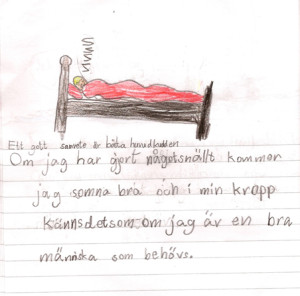 Ett gott samvete är bästa huvudkudden
Om jag har gjort någotsnällt kommer
jag somna bra och i min kropp
kännsdetsom om jag är en bra
människa som behövs.